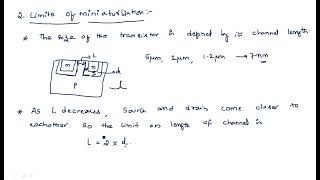 2. Limits of miniaturization:-
* The size of the transistor is depend by its channel length.
L
5µm, 2µm, 1.2µm → 7nm
n n
d
P
* As L decreases, Source and drain come closer to
eachother. So the limit on length of channel is
L = 2 x d.